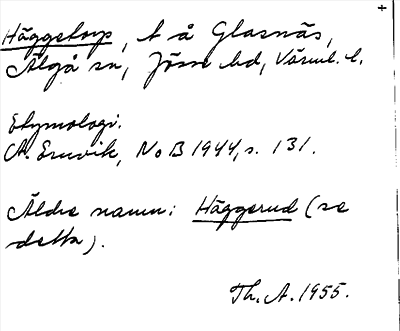 Häggetorp, t å Glasnäs,
Älgå sn, Jösse hd, Värml. l.
Etymologi.
A. Ernvik, NoB 1944, s. 131.
Äldre namn: Häggerud (se
detta).
Th. A. 1955.